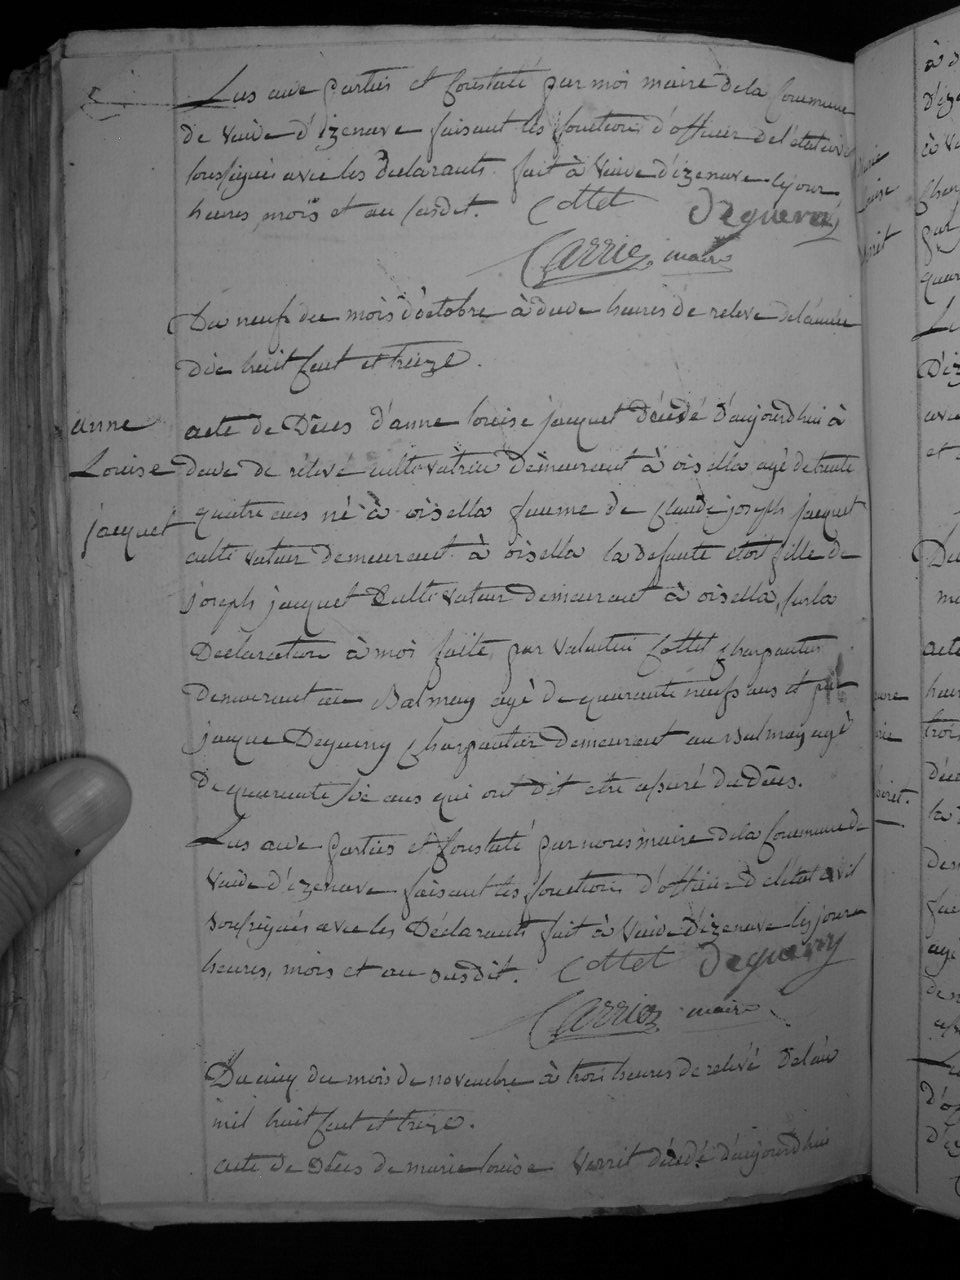 Lus aux parties et Constaté par moi maire de la Commune
de Vieu d'izenave faisant les fonctions d'officier de l'état civil
soussignés avec les declarants. fait à Vieu d'izenave les jour
heures, mois et an susdit. Cottet Deguerry
Carrier maire
Du neuf du mois d'octobre à deux heures de relevé de l'année
dix huit Cent et treize.
anne
Louise
jacquet
acte de Déces d'anne louise jacquet décédé d'aujourdhui à
deux de relevé cultivatrice demeurant à oisella agé de trente
quatre ans né à oisella femme de Claude joseph jacquet
cultivateur demeurant à oisella la defunte etoit fille de
joseph jacquet Cultivateur demeurant à oisella, sur la
Declaration à moi faite, par Valentin Cottet Charpentier
demeurant au Balmay agé de quarante neuf ans et par
jacque Deguerry Charpentier demeurant au Balmay agé
de quarente six ans qui ont dit etre du Déces.
Lus aux parties et Constaté par nous maire de la Commune de
Vieu d'izenave faisant les fonctions d'officier de l'état civil
soussignés avec les Déclarants fait à Vieu d'izenave les jours
heures, mois et an susdit. Cottet Deguerry
Carrier maire
Du cinq du mois de novembre à trois heures de relevé de l'an
mil huit Cent et treize.
acte de Déces de marie louise décédé d'aujourdhui